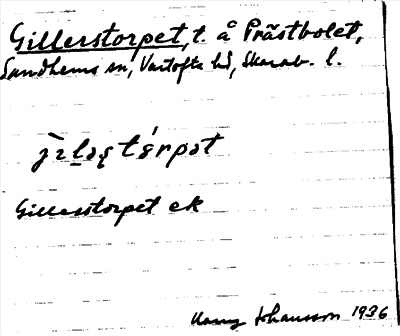 Gillerstorpet, t. å Prästbolet,
Sandhems sn, Vartofta hd, Skarab. l.
Gillerstorpet ek
Harry Johansson 1936